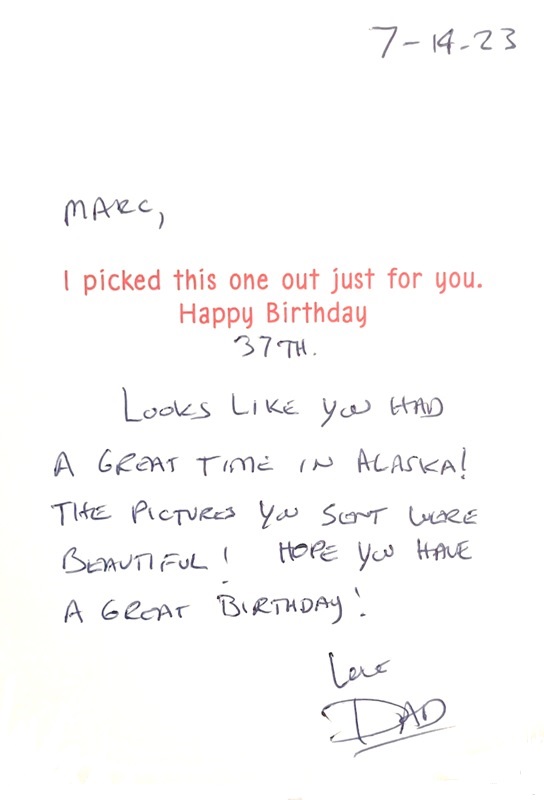 7-14-23
MARC,
I picked this one out just for you.
Happy Birthday
37TH.
LOOKS LIKE YOU HAD
A GREAT TIME IN ALASKA!
THE PICTURES YOU SENT WERE
BEAUTIFUL! HOPE YOU HAVE
A GREAT BIRTHDAY!
Love
DAD